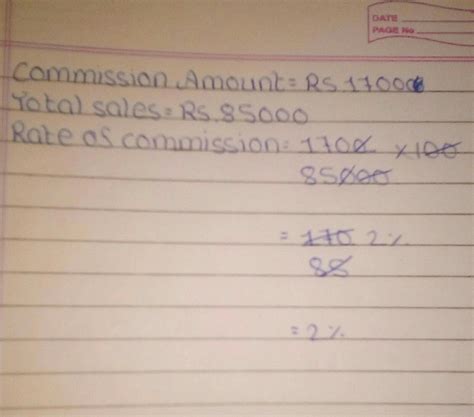 DATE
PAGE No
Commission Amount = RS 1700
Total sales = RS.85000
Rate of commission = 1700 x 100
85000
= 170 2%
85
= 2%